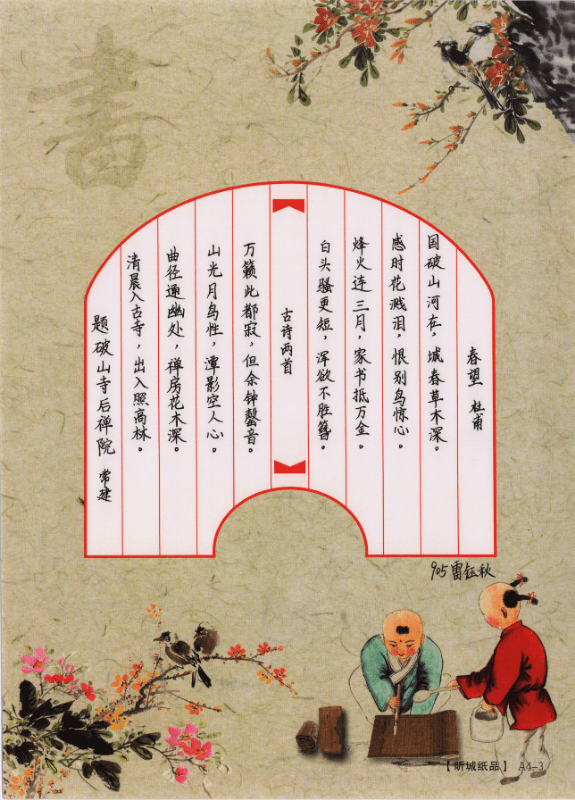 書
春望 杜甫
国破山河在，城春草木深。
感时花溅泪，恨别鸟惊心。
烽火连三月，家书抵万金。
白头骚更短，浑欲不胜簪。
古诗两首
题破山寺后禅院 常建
清晨入古寺，出入照高林。
曲径通幽处，禅房花木深。
山光月鸟性，潭影空人心。
万籁此都寂，但余钟磬音。
905雷钰秋
【昕城纸品】 A4-3